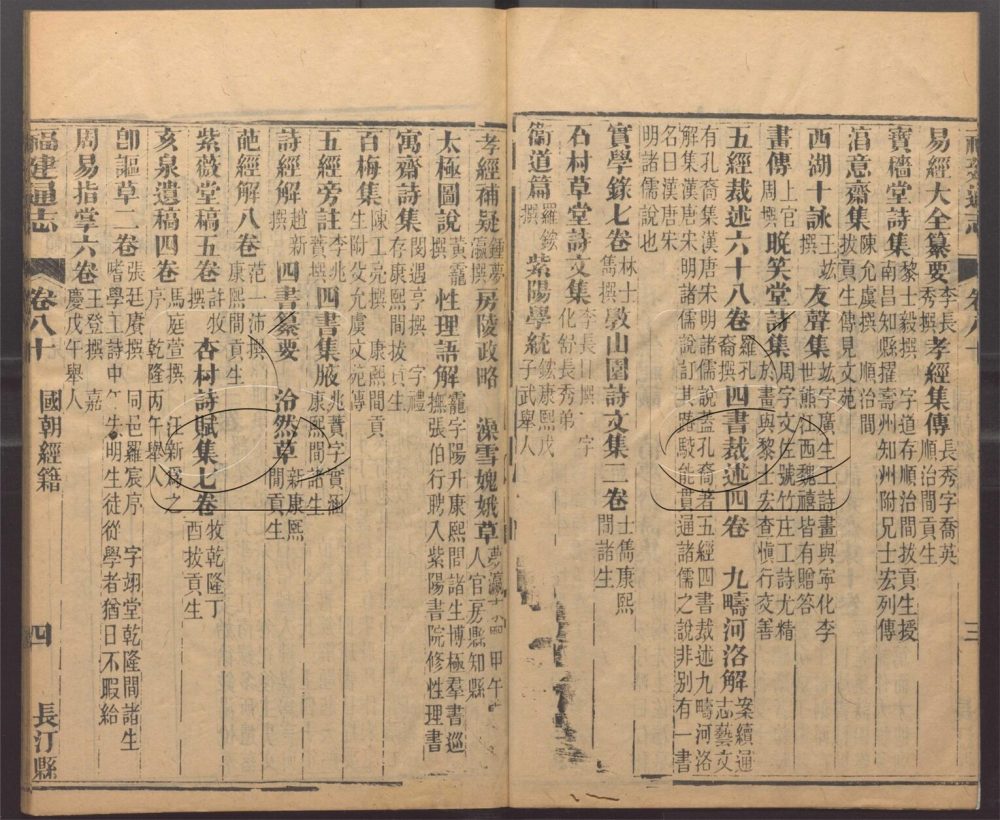 易經大全纂要李長秀撰孝經集傳長秀字喬英順治間貢生
寶穡堂詩集黎士毅撰字道存順治間拔貢生授南昌知縣擢壽州知州附兄士宏列傳
淯意齋集陳允虞撰順治間拔貢生傳見文苑
西湖十詠王竑撰友聲集竑字廣生工詩畫與寧化李世熊江西魏禧皆有贈答
畫傳上官周撰晚笑堂詩集周字文佐號竹庄工詩尤精於畫與黎士宏查慎行交善
五經裁述六十八卷羅孔裔撰四書裁述四卷 九疇河洛解案續通志藝文
有孔裔集漢唐宋明諸儒說蓋孔裔著五經四書裁述九疇河洛
解集漢唐宋明諸儒說訂其踳駁能貫通諸儒之說非別有一書
名曰漢唐宋
明諸儒說也
實學錄七卷林士雋撰敦山園詩文集二卷士雋康熙間諸生
石村草堂詩文集李長日撰字化舒長秀弟
衞道篇羅鎵撰紫陽學統鎵康熙戊子武舉人
孝經補疑鍾夢瀛撰房陵政略 澡雪媿娥草夢瀛甲午人官房縣知縣
太極圖說黃靇撰性理語解靇字陽升康熙間諸生博極羣書巡撫張伯行聘入紫陽書院修性理書
寓齋詩集閔遇亨撰字禮存康熙間拔貢生
百梅集陳工亮撰康熙間貢生附攸允虞文苑傳
五經旁註李兆蕡撰四書集腋兆蕡字實涵康熙間諸生
詩經解趙新撰四書纂要 泠然草新康熙間貢生
葩經解八卷范一沛撰康熙間貢生
紫薇堂稿五卷許牧撰杏村詩賦集七卷牧乾隆丁酉拔貢生
亥泉遺稿四卷馬庭萱撰汪新爲之序乾隆丙午舉人
卽謳草二卷張廷賡撰同邑羅宸序字翊堂乾隆間諸生嗜學工詩中年失明生徒從學者猶日不暇給
周易指掌六卷王登撰嘉慶戊午舉人
福建通志
卷八十
國朝經籍
四
長汀縣